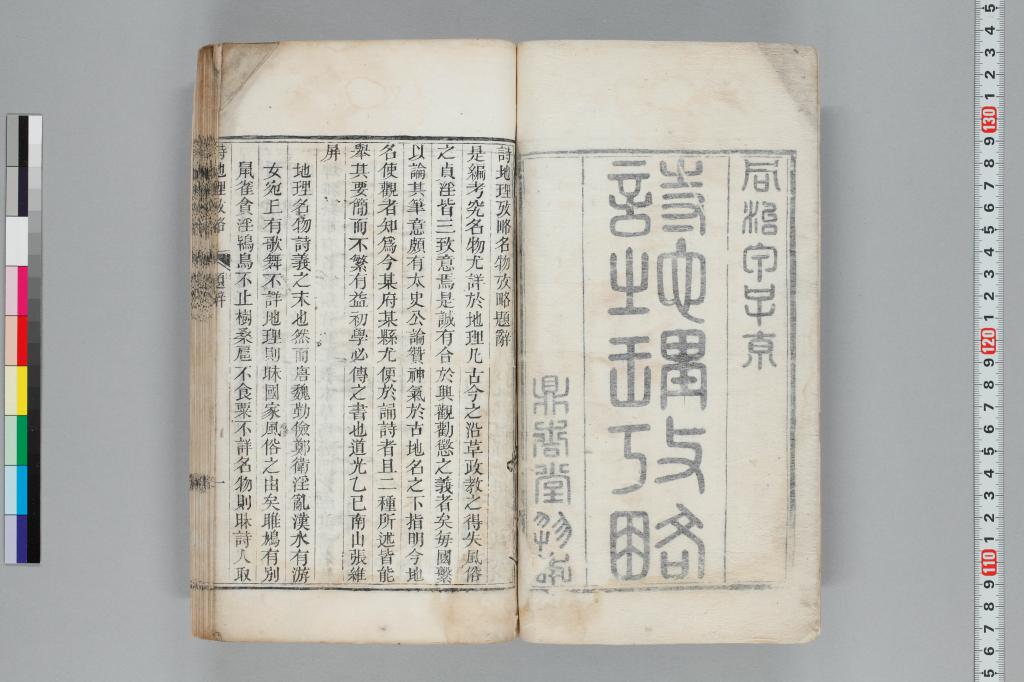 詩地理攷略
詩地理攷略名物攷略題辭
是編考究名物尤詳於地理凡古今之沿革政教之得失風俗
之貞淫皆三致意焉是誠有合於興觀勸懲之義者矣每國繫
以論其筆意頗有太史公論贊神氣於古地名之下指明今地
名使觀者知爲今某府某縣尤便於誦詩者且二種所述皆能
舉其要簡而不繁有益初學必傳之書也道光乙巳南山張維
屏
地理名物詩義之末也然而唐魏勤儉鄭衛淫亂漢水有游
女宛丘有歌舞不詳地理則昧國家風俗之由矣雎鳩有別
鼠雀貪淫鴇鳥不止樹桑扈不食粟不詳名物則昧詩人取
詩地理攷略 題辭 一